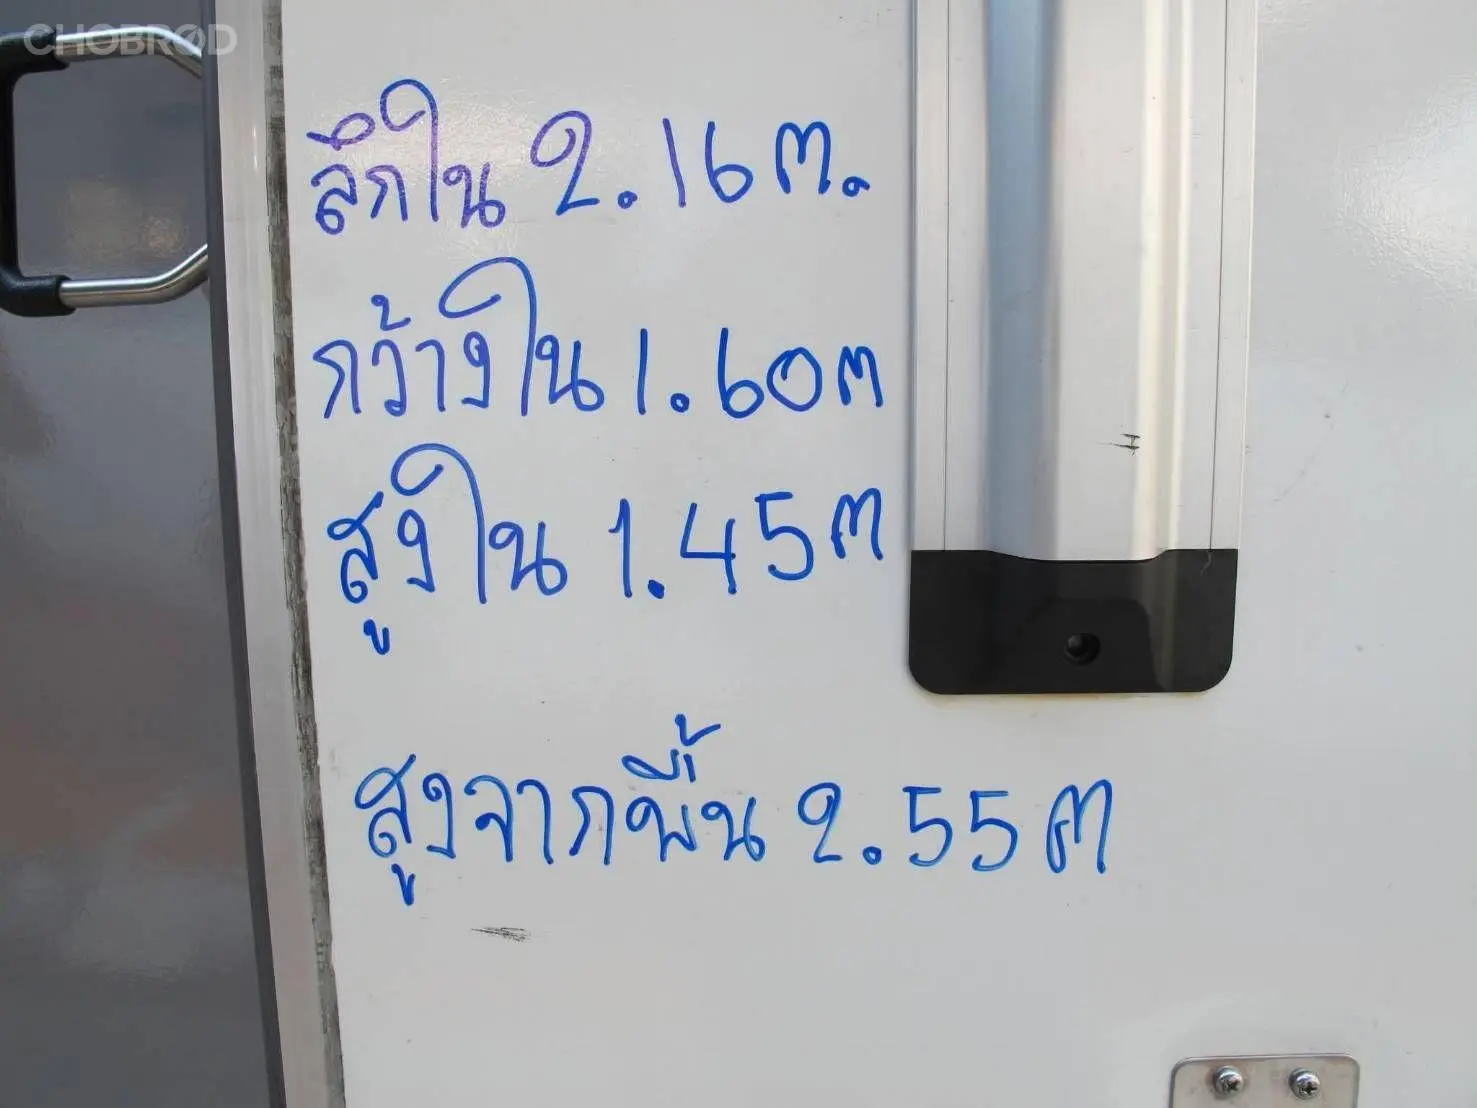 CHOBROD
ลึกใน 2.16 ต.
กว้างใน 1.60 ต
สูงใน 1.45 ต
สูงจากพื้น 2.55 ต